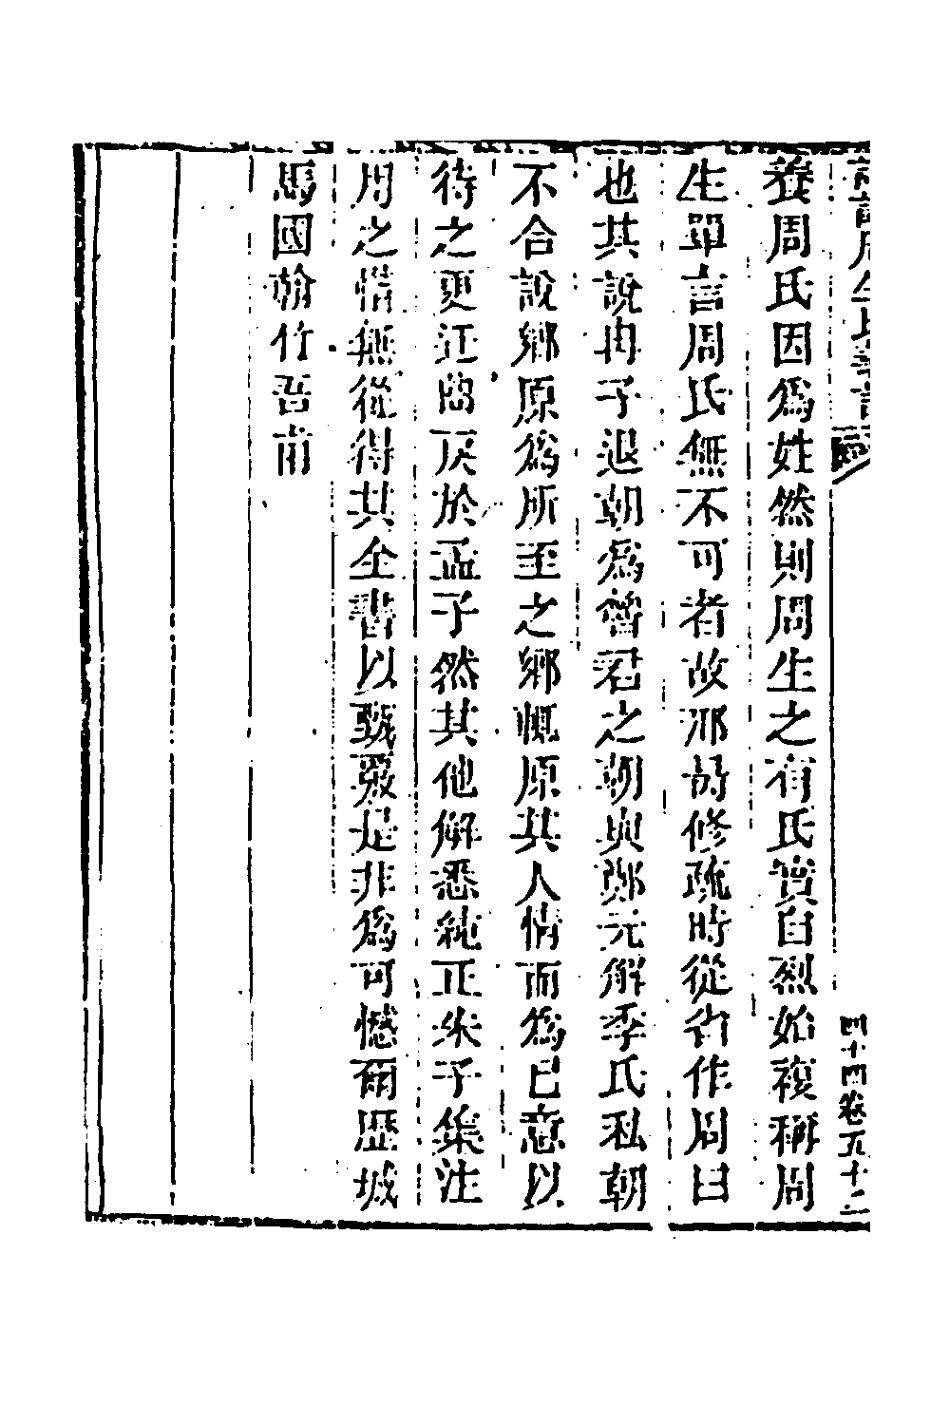 養周氏因爲姓然則周生之有氏實自烈始複稱周
生單言周氏無不可者故邢昺修疏時從省作周曰
也其說冉子退朝爲魯君之朝與鄭元解季氏私朝
不合說鄉原爲所至之鄉輒原其人情而爲已意以
待之更迂曲戾於孟子然其他解悉純正朱子集注
周之情無從得其全書以甄覈是非爲可憾爾歷城
馬國翰竹吾甫
四十四卷五十二